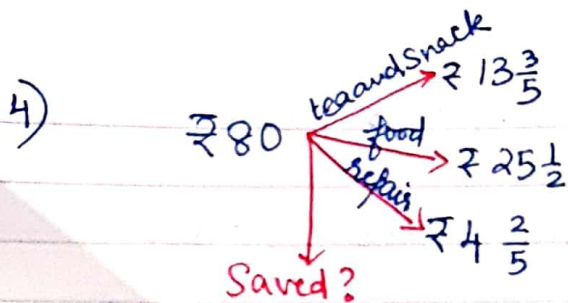 4)
₹80
tea and Snack ₹ 13 3/5
food ₹ 25 1/2
repair ₹ 4 2/5
Saved?